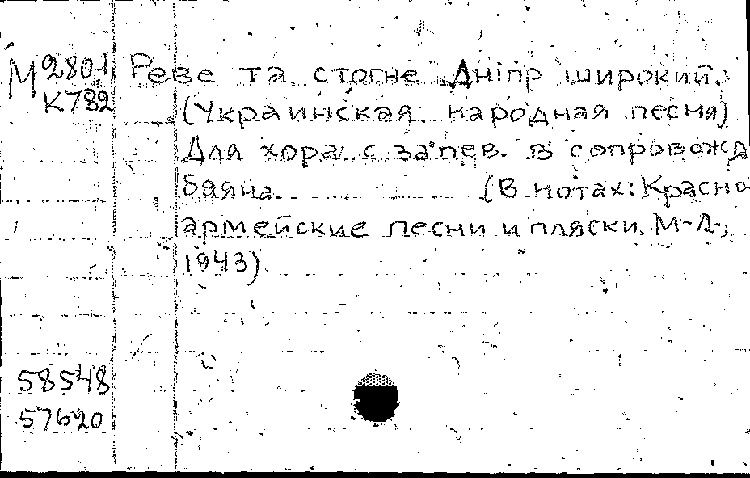 М 2801 Реве та стогне Дніпр широкий.
К782 (Украинская народная песня)
Для хора с запев. в сопровожд
баяна. (В нотах: Красно-
армейские песни и пляски. М-Л.,
1943)
58548
57620